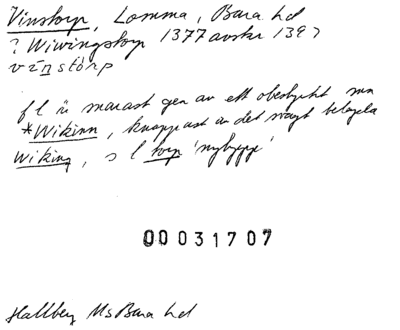 Vinstorp, Lomma, Bara hd
? Wiwingstorp 1377 avskr 139?
vīnstórp
fl är snarast gen av ett obestyrkt mn
*Wikinn, knappast av det svagt belagda
Wiking, sl torp 'nybygge'
00031707
Hallberg Ms Bara hd